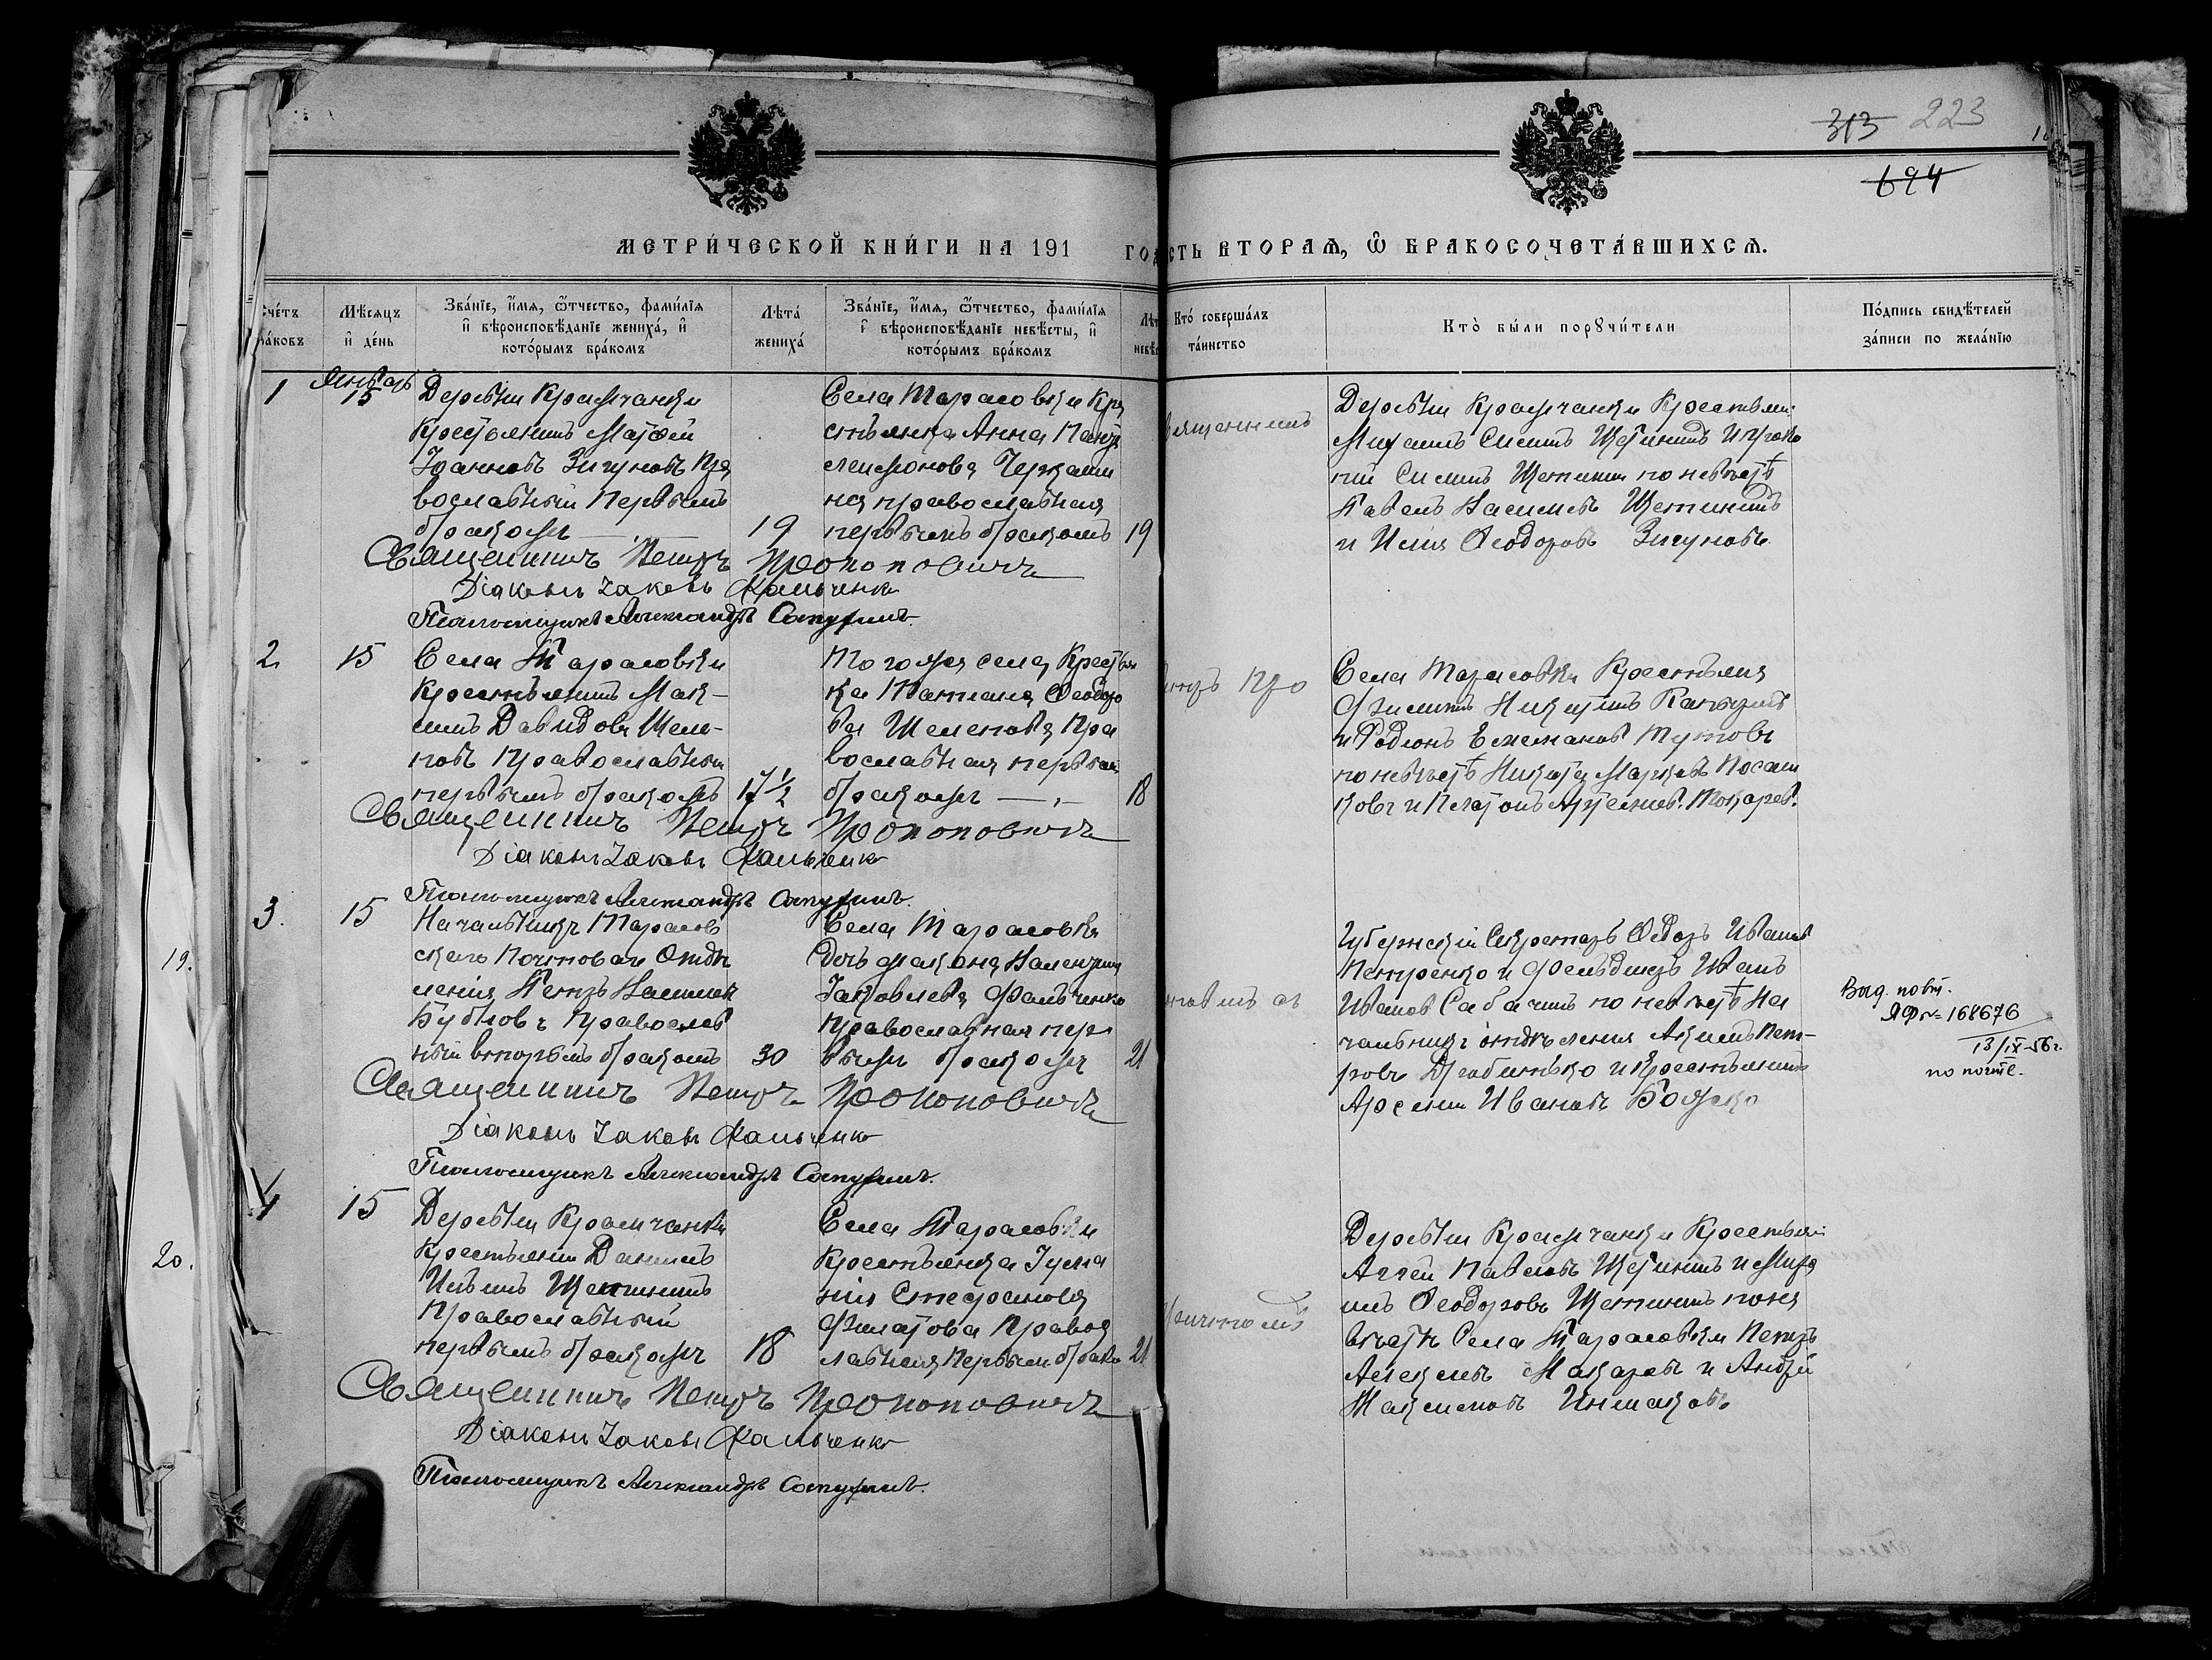 313 223
694
МЕТРИ́ЧЕСКОЙ КНИ́ГИ НА 191 ГО
СТЬ ВТОРАѦ, Ѿ БРАКОСОЧЕТА́ВШИХСѦ.
Сче́тъ бра́ковъ
Мѣ́сѧцъ и҆ де́нь
Зва́нїе, и҆́мѧ, ѻ҆́тчество, фами́лїѧ
и҆ вѣроисповѣ́данїе жениха̀, и҆
кото́рымъ бра́комъ
Лѣ́та жениха̀
Зва́нїе, и҆́мѧ, ѻ҆́тчество, фами́лїѧ
и҆ вѣроисповѣ́данїе невѣ́сты, и҆
кото́рымъ бра́комъ
Лѣт
невѣс
Кто̀ соверша́лъ
та́инство
Кто̀ бы́ли порꙋчи́тели
По́дпись свидѣ́телей
за́писи по жела́нїю
1
Январь
15
Деревни Крамчанки
Крестьянинъ Матѳей
Іоанновъ Зигуновъ Пра
вославный первымъ
бракомъ
19
Села Тарасовки Кре
стьянка Анна Пант
елеимонова
на православная
первымъ бракомъ
19
вященникъ
Деревни Крамчанки Крестьяни
Михаилъ Щетининъ и
Щетинин по невѣстѣ
Павелъ Василіевъ Щетининъ
и Илія Ѳеодоровъ Зигуновъ.
Священникъ Петръ Прокоповичъ
Діаконъ Іаковъ Фальченко
Псаломщикъ Александръ
2
15
Села Тарасовки
Крестьянинъ Мак-
симъ Давидовъ Шеле-
новъ Православный
первымъ бракомъ
17 ½
Того же села Крестьян
ка Татіана Ѳеодоро
ва Шеленова Пра
вославная первымъ
бракомъ
18
етръ Про
Села Тарасовки Крестьяня
Никитинъ
и Родіонъ Емельяновъ Тутовъ
по невѣстѣ Никита Марковъ
и Платонъ Токарев.
Священникъ Петръ Прокоповичъ
Діаконъ Іаковъ Фальченко
Псаломщикъ Александръ
3.
15
Начальникъ Тарасов
скаго Почтоваго Отдѣ
ленія Петръ Василіев
Бубновъ Православ
ный вторымъ бракомъ
30
Села Тарасовки
Дочь діакона Валентина
Іаковлева Фальченко
Православная пер
вымъ бракомъ
21
Губернскій Секретарь Ѳедоръ Иванов
Петренко и фельдшеръ Иванъ
Ивановъ Сабачинъ по невѣстѣ На
чальникъ отдѣленія Акимъ Пет-
ровъ и Крестьянинъ
Арсеній Ивановъ Божко
Выд. повт.
ЯФ № 168676
13/IX-56 г.
по почте.
Священникъ Петръ Прокоповичъ
Діаконъ Іаковъ Фальченко
Псаломщикъ Александръ
4
15
Деревни Крамчанки
Крестьянин Даніилъ
Щетининъ
Православный
первымъ бракомъ
18
Села Тарасовки
Крестьянка Іулиа
нія Стефанова
Филатова Правос
лавная первым брако
21
Деревни Крамчанки Крестьяни
Аггей Павловъ Щетининъ и Миха
илъ Ѳеодоровъ Щетининъ по не
вѣстѣ Села Тарасовки Петръ
Алексѣевъ Макаровъ и Андрей
Максимовъ
Священникъ Петръ Прокоповичъ
Діаконъ Іаковъ Фальченко
Псаломщикъ Александръ
19.
20.